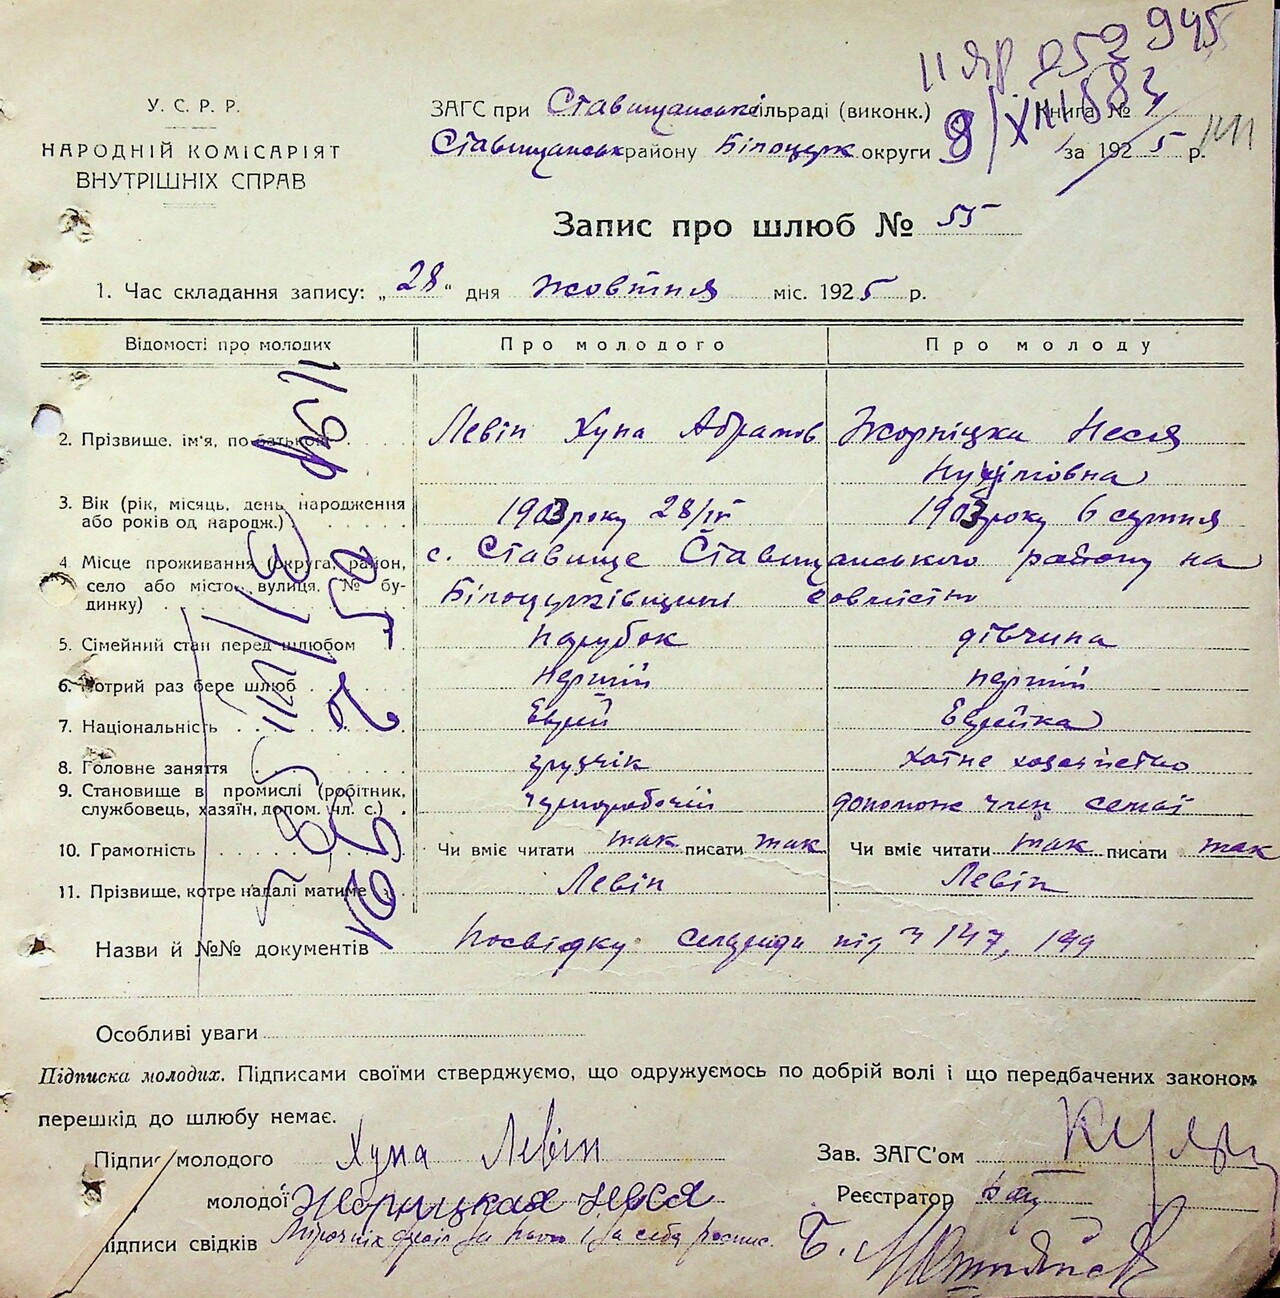 11 ЯР 052945
У. С. Р. Р.
НАРОДНІЙ КОМІСАРІЯТ
ВНУТРІШНІХ СПРАВ
ЗАГС при Ставищанськ сільраді (виконк.) Книга №
Ставищанськ району Білоцерк округи за 1925 р.
Запис про шлюб № 55
1. Час складання запису: „28“ дня жовтня міс. 1925 р.
Відомості про молодих Про молодого Про молоду
2. Прізвище, ім'я, по батькові Левін Хуна Абрамов Жорніцка Неся
Нухімовна
3. Вік (рік, місяць, день народження або років од народж.) 1903 року 28/IV 1903 року 6 серпня
4. Місце проживання (округа, район, село або місто, вулиця, № будинку) с. Ставище Ставищанського району на
Білоцерківщині
5. Сімейний стан перед шлюбом парубок дівчина
6. Котрий раз бере шлюб перший перший
7. Національність Еврей Еврейка
8. Головне заняття грузчік хатне хозяйство
9. Становище в промислі (робітник, службовець, хазяїн, допом. чл. с.) чорноробочій допомож член семьї
10. Грамотність Чи вміє читати так писати так Чи вміє читати так писати так
11. Прізвище, котре надалі матиме Левін Левін
Назви й №№ документів Посвідку сельради під № 147, 149
Особливі уваги
Підписка молодих. Підписами своїми стверджуємо, що одружуємось по добрій волі і що передбачених законом
перешкід до шлюбу немає.
Підпис молодого Хуна Левін Зав. ЗАГС'ом
молодої Жорницкая Неся Реєстратор
Підписи свідків